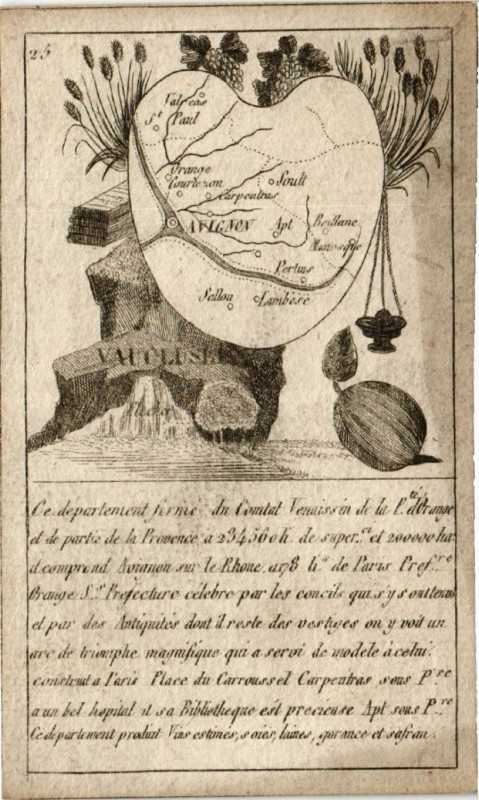 25
Valreas
St Paul
Orange
Courtezon
Carpentras
Soult
AVIGNON
Apt
Brillane
Manosque
Pertuis
Sellon
Lambesc
VAUCLUSE
Ce département formé du Comtat Venaissin de la P.té d'Orange
et de partie de la Provence, a 234560 h. de super.et et 200000 ha.
il comprend Avignon sur le Rhone, a 178 li.s de Paris Pref.re
Orange S.s Prefecture célebre par les concils qui s'y sont tenus
et par des Antiquités dont il reste des vestiges on y voit un
arc de triomphe magnifique qui a servi de modele à celui
construit a Paris Place du Carroussel Carpentras sous P.re
a un bel hopital et sa Bibliotheque est precieuse Apt sous P.re
Ce departement produit Vins estimés, soies, laines, garance et safran.